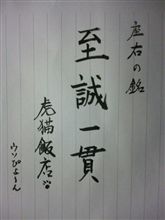 座右の銘
至誠一貫
虎猫飯店
ウソぴょーん